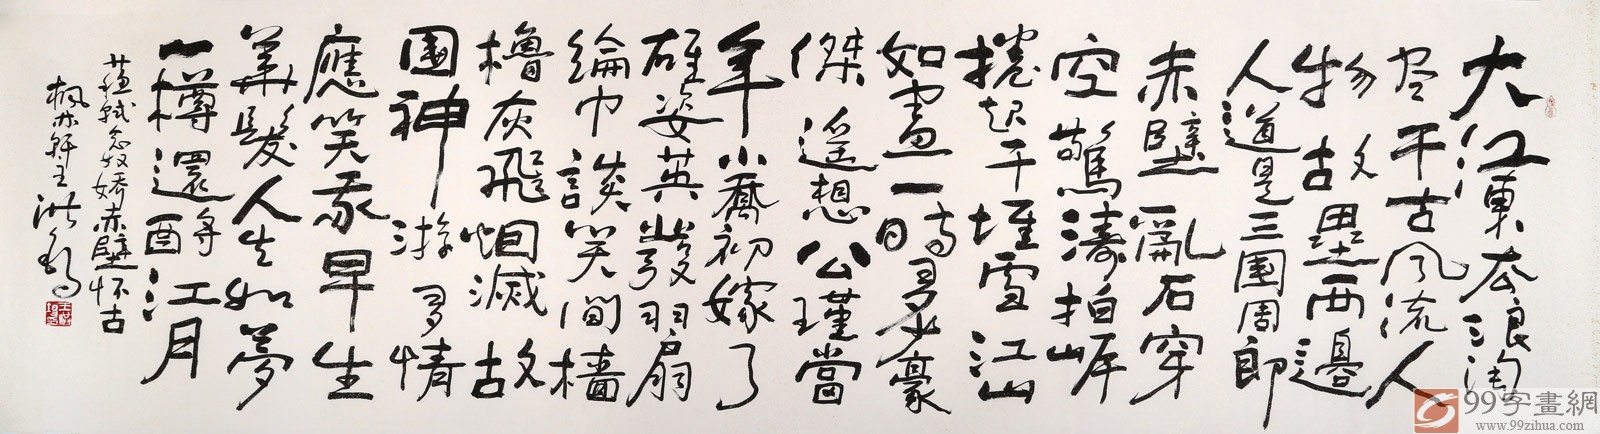 大江東去浪淘
尽千古风流人
物故壘西邊
人道是三國周郎
赤壁亂石穿
空驚濤拍岸
捲起千堆雪江山
如畫一時多少豪
傑遥想公瑾當
年小喬初嫁了
雄姿英發羽扇
綸巾談笑間檣
櫓灰飛烟滅故
國神游多情
應笑我早生
華髮人生如夢
一樽還酹江月
蘇軾念奴嬌赤壁怀古
枫林軒主洪
99字畫網
www.99zihua.com